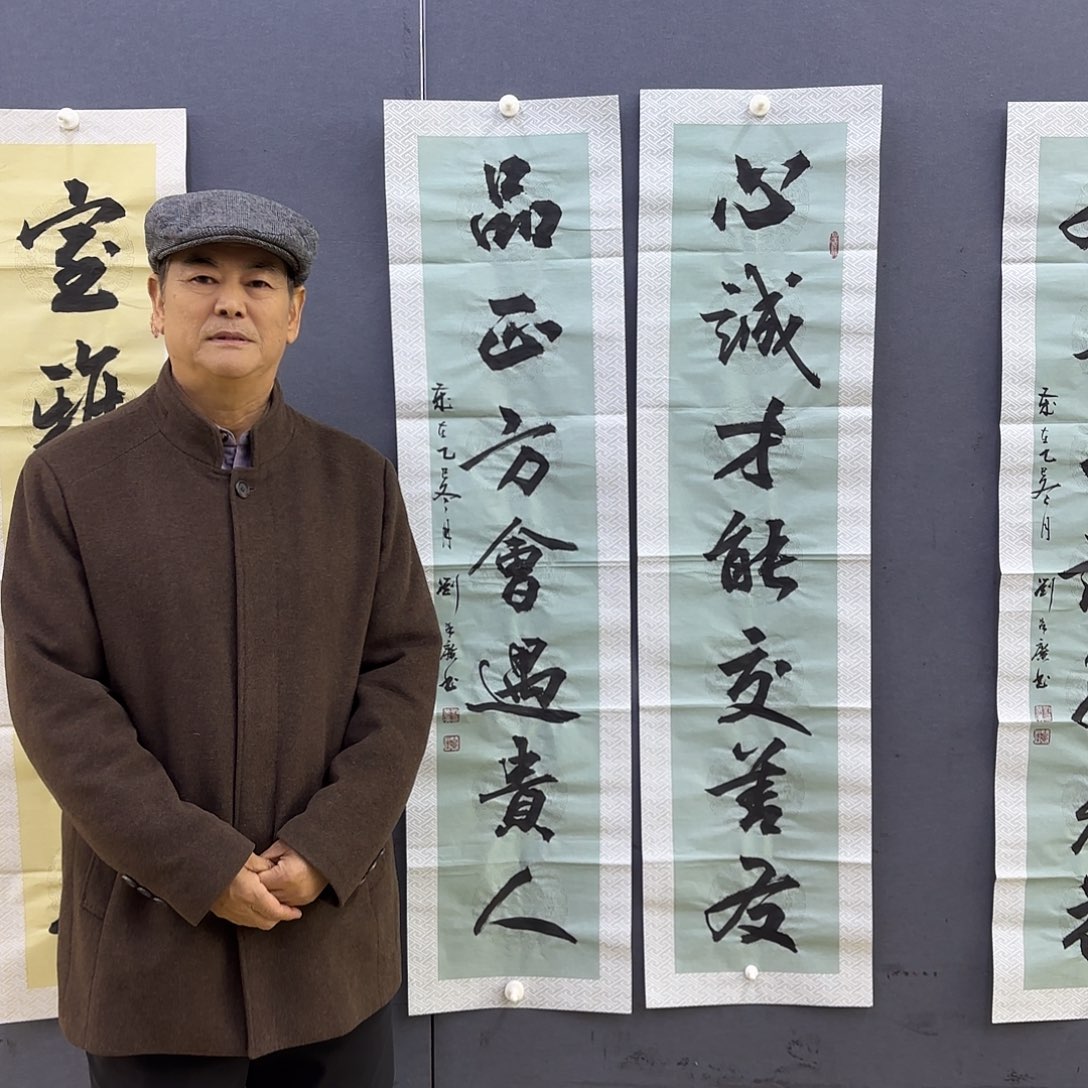 歲在乙巳冬月 劉 廣书
心誠才能交善友
品正方會遇貴人
歲在乙巳冬月 劉 廣书
室雅